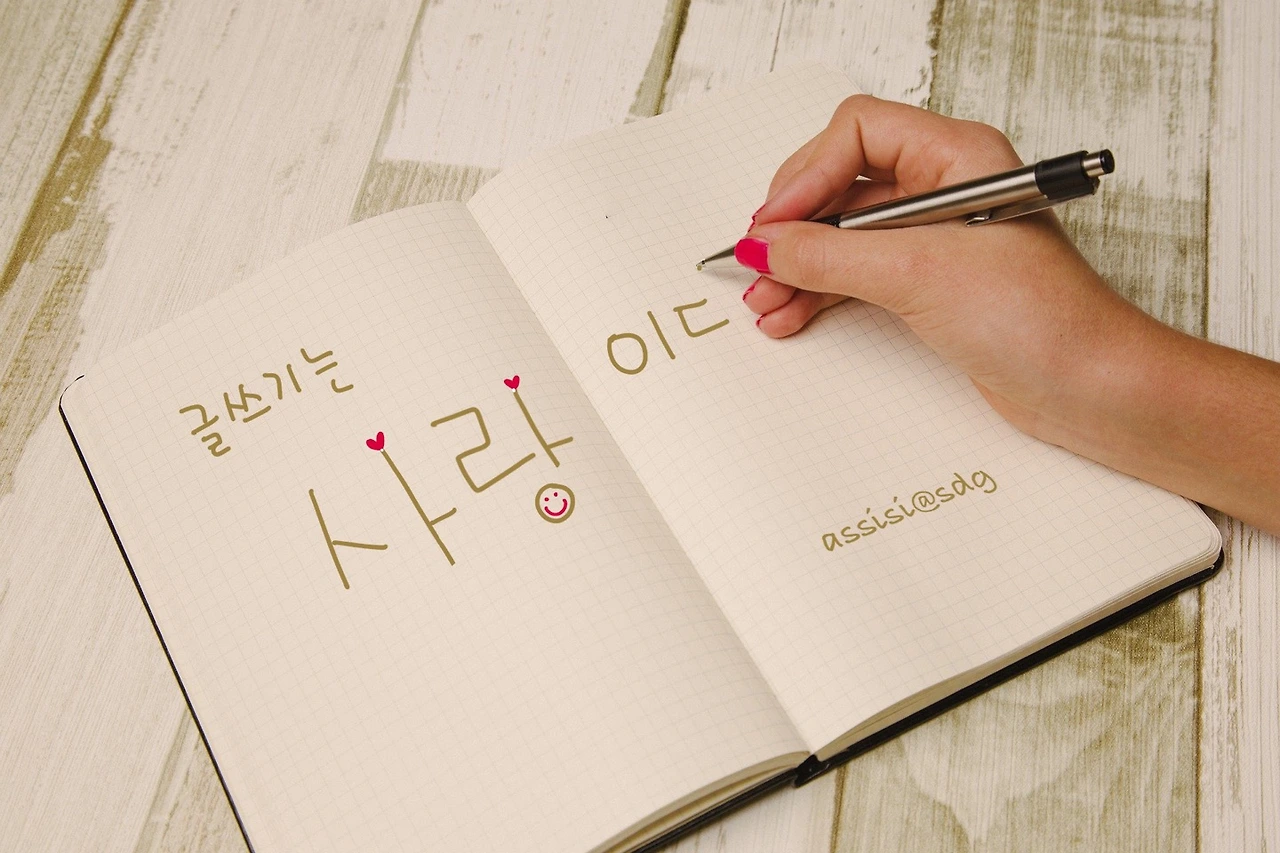 글쓰기는
사랑
이ㄷ
assisi@sdg